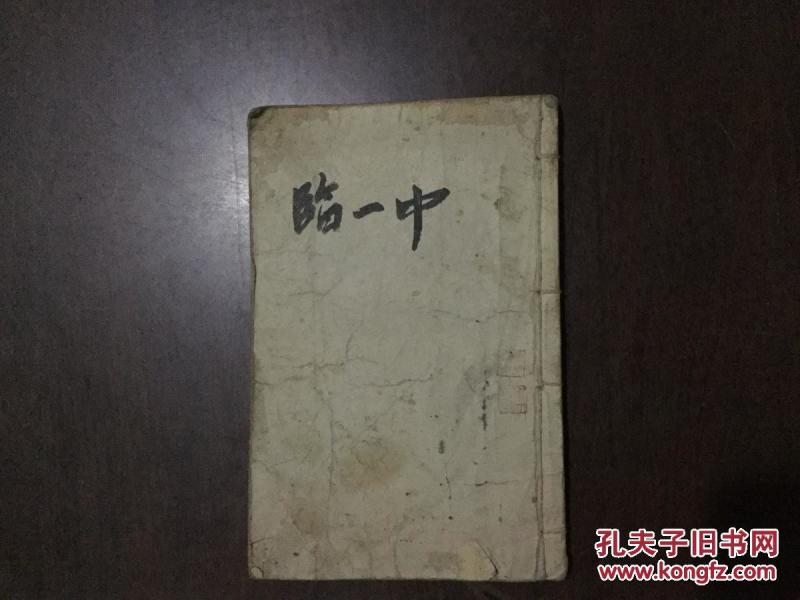 临一中
孔夫子旧书网
www.kongfz.com